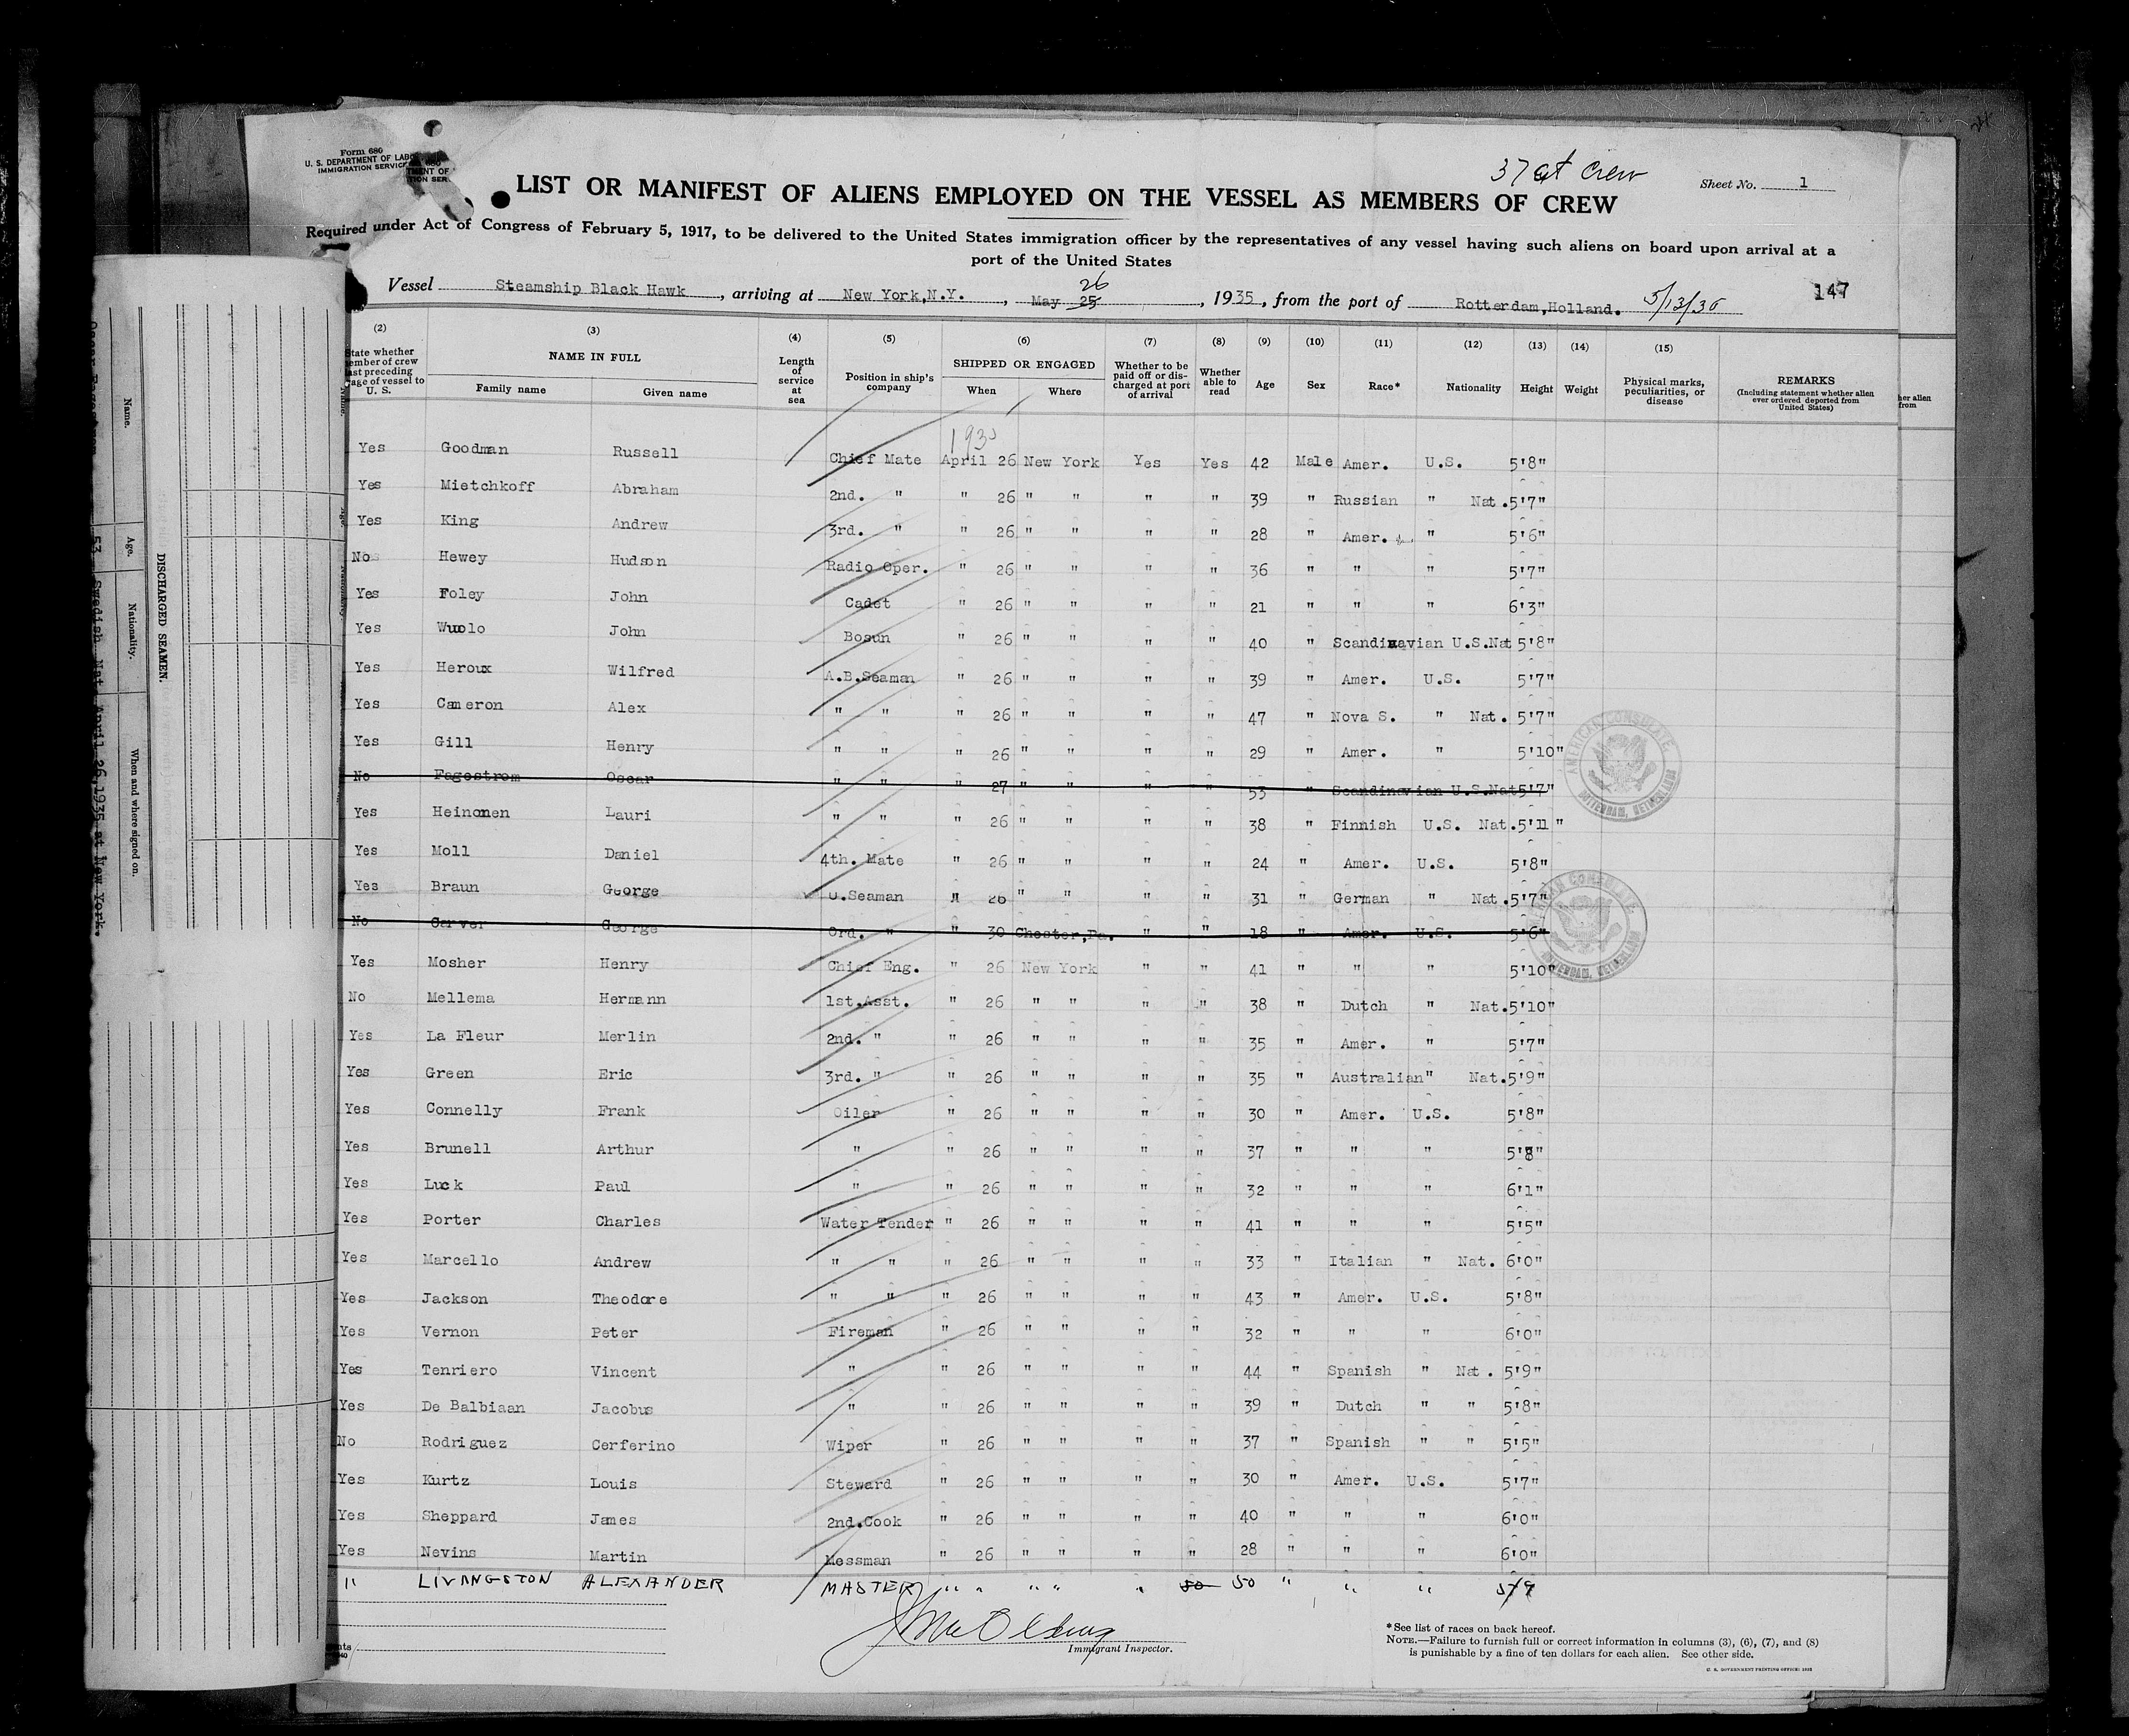 Form 680
U. S. DEPARTMENT OF LABOR
IMMIGRATION SERVICE
37 at Crew
Sheet No. 1
LIST OR MANIFEST OF ALIENS EMPLOYED ON THE VESSEL AS MEMBERS OF CREW
Required under Act of Congress of February 5, 1917, to be delivered to the United States immigration officer by the representatives of any vessel having such aliens on board upon arrival at a
port of the United States
26
Vessel Steamship Black Hawk, arriving at New York,N.Y., May 25, 1935, from the port of Rotterdam,Holland. 5/13/35 147
(2) (3) (4) (5) (6) (7) (8) (9) (10) (11) (12) (13) (14) (15)
State whether member of crew last preceding voyage of vessel to U. S. NAME IN FULL Family name Given name Length of service at sea Position in ship's company SHIPPED OR ENGAGED When Where Whether to be paid off or discharged at port of arrival Whether able to read Age Sex Race* Nationality Height Weight Physical marks, peculiarities, or disease REMARKS (Including statement whether alien ever ordered deported from United States)
her alien
from
193
Yes Goodman Russell Chief Mate April 26 New York Yes Yes 42 Male Amer. U.S. 5'8"
Yes Mietchkoff Abraham 2nd. " " 26 " " " " 39 " Russian " Nat. 5'7"
Yes King Andrew 3rd. " " 26 " " " " 28 " Amer. " 5'6"
No Hewey Hudson Radio Oper. " 26 " " " " 36 " " " 5'7"
Yes Foley John Cadet " 26 " " " " 21 " " " 6'3"
Yes Wuolo John Bosun " 26 " " " " 40 " Scandinavian U.S.Nat 5'8"
Yes Heroux Wilfred A.B.Seaman " 26 " " " " 39 " Amer. U.S. 5'7"
Yes Cameron Alex " " " 26 " " " " 47 " Nova S. " Nat. 5'7"
Yes Gill Henry " " " 26 " " " " 29 " Amer. " 5'10"
No Fagestrom Oscar " " " 27 " " " " 53 " Scandinavian U.S.Nat 5'7"
Yes Heinonen Lauri " " " 26 " " " " 38 " Finnish U.S. Nat. 5'11"
Yes Moll Daniel 4th. Mate " 26 " " " " 24 " Amer. U.S. 5'8"
Yes Braun George O.Seaman " 26 " " " " 31 " German " Nat. 5'7"
No Carver George Ord. " " 30 Chester,Pa. " " 18 " Amer. U.S. 5'6"
Yes Mosher Henry Chief Eng. " 26 New York " " 41 " " " 5'10"
No Mellema Hermann 1st.Asst. " 26 " " " " 38 " Dutch " Nat. 5'10"
Yes La Fleur Merlin 2nd. " " 26 " " " " 35 " Amer. " 5'7"
Yes Green Eric 3rd. " " 26 " " " " 35 " Australian " Nat. 5'9"
Yes Connelly Frank Oiler " 26 " " " " 30 " Amer. U.S. 5'8"
Yes Brunell Arthur " " 26 " " " " 37 " " " 5'8"
Yes Luck Paul " " 26 " " " " 32 " " " 6'1"
Yes Porter Charles Water Tender " 26 " " " " 41 " " " 5'5"
Yes Marcello Andrew " " " 26 " " " " 33 " Italian " Nat. 6'0"
Yes Jackson Theodore " " " 26 " " " " 43 " Amer. U.S. 5'8"
Yes Vernon Peter Fireman " 26 " " " " 32 " " " 6'0"
Yes Tenriero Vincent " " 26 " " " " 44 " Spanish " Nat. 5'9"
Yes De Balbiaan Jacobus " " 26 " " " " 39 " Dutch " " 5'8"
No Rodriguez Cerferino Wiper " 26 " " " " 37 " Spanish " " 5'5"
Yes Kurtz Louis Steward " 26 " " " " 30 " Amer. U.S. 5'7"
Yes Sheppard James 2nd.Cook " 26 " " " " 40 " " " 6'0"
Yes Nevins Martin Messman " 26 " " " " 28 " " " 6'0"
" LIVINGSTON ALEXANDER MASTER " " " " " 50 50 " " " 5/9
Immigrant Inspector.
*See list of races on back hereof.
NOTE.—Failure to furnish full or correct information in columns (3), (6), (7), and (8)
is punishable by a fine of ten dollars for each alien. See other side.
U. S. GOVERNMENT PRINTING OFFICE
AMERICAN CONSULATE
ROTTERDAM, NETHERLANDS
AMERICAN CONSULATE
ROTTERDAM, NETHERLANDS
DISCHARGED SEAMEN.
Name. Age. Nationality. When and where signed on.
53 Swedish Nat April 26,1935 at New York.